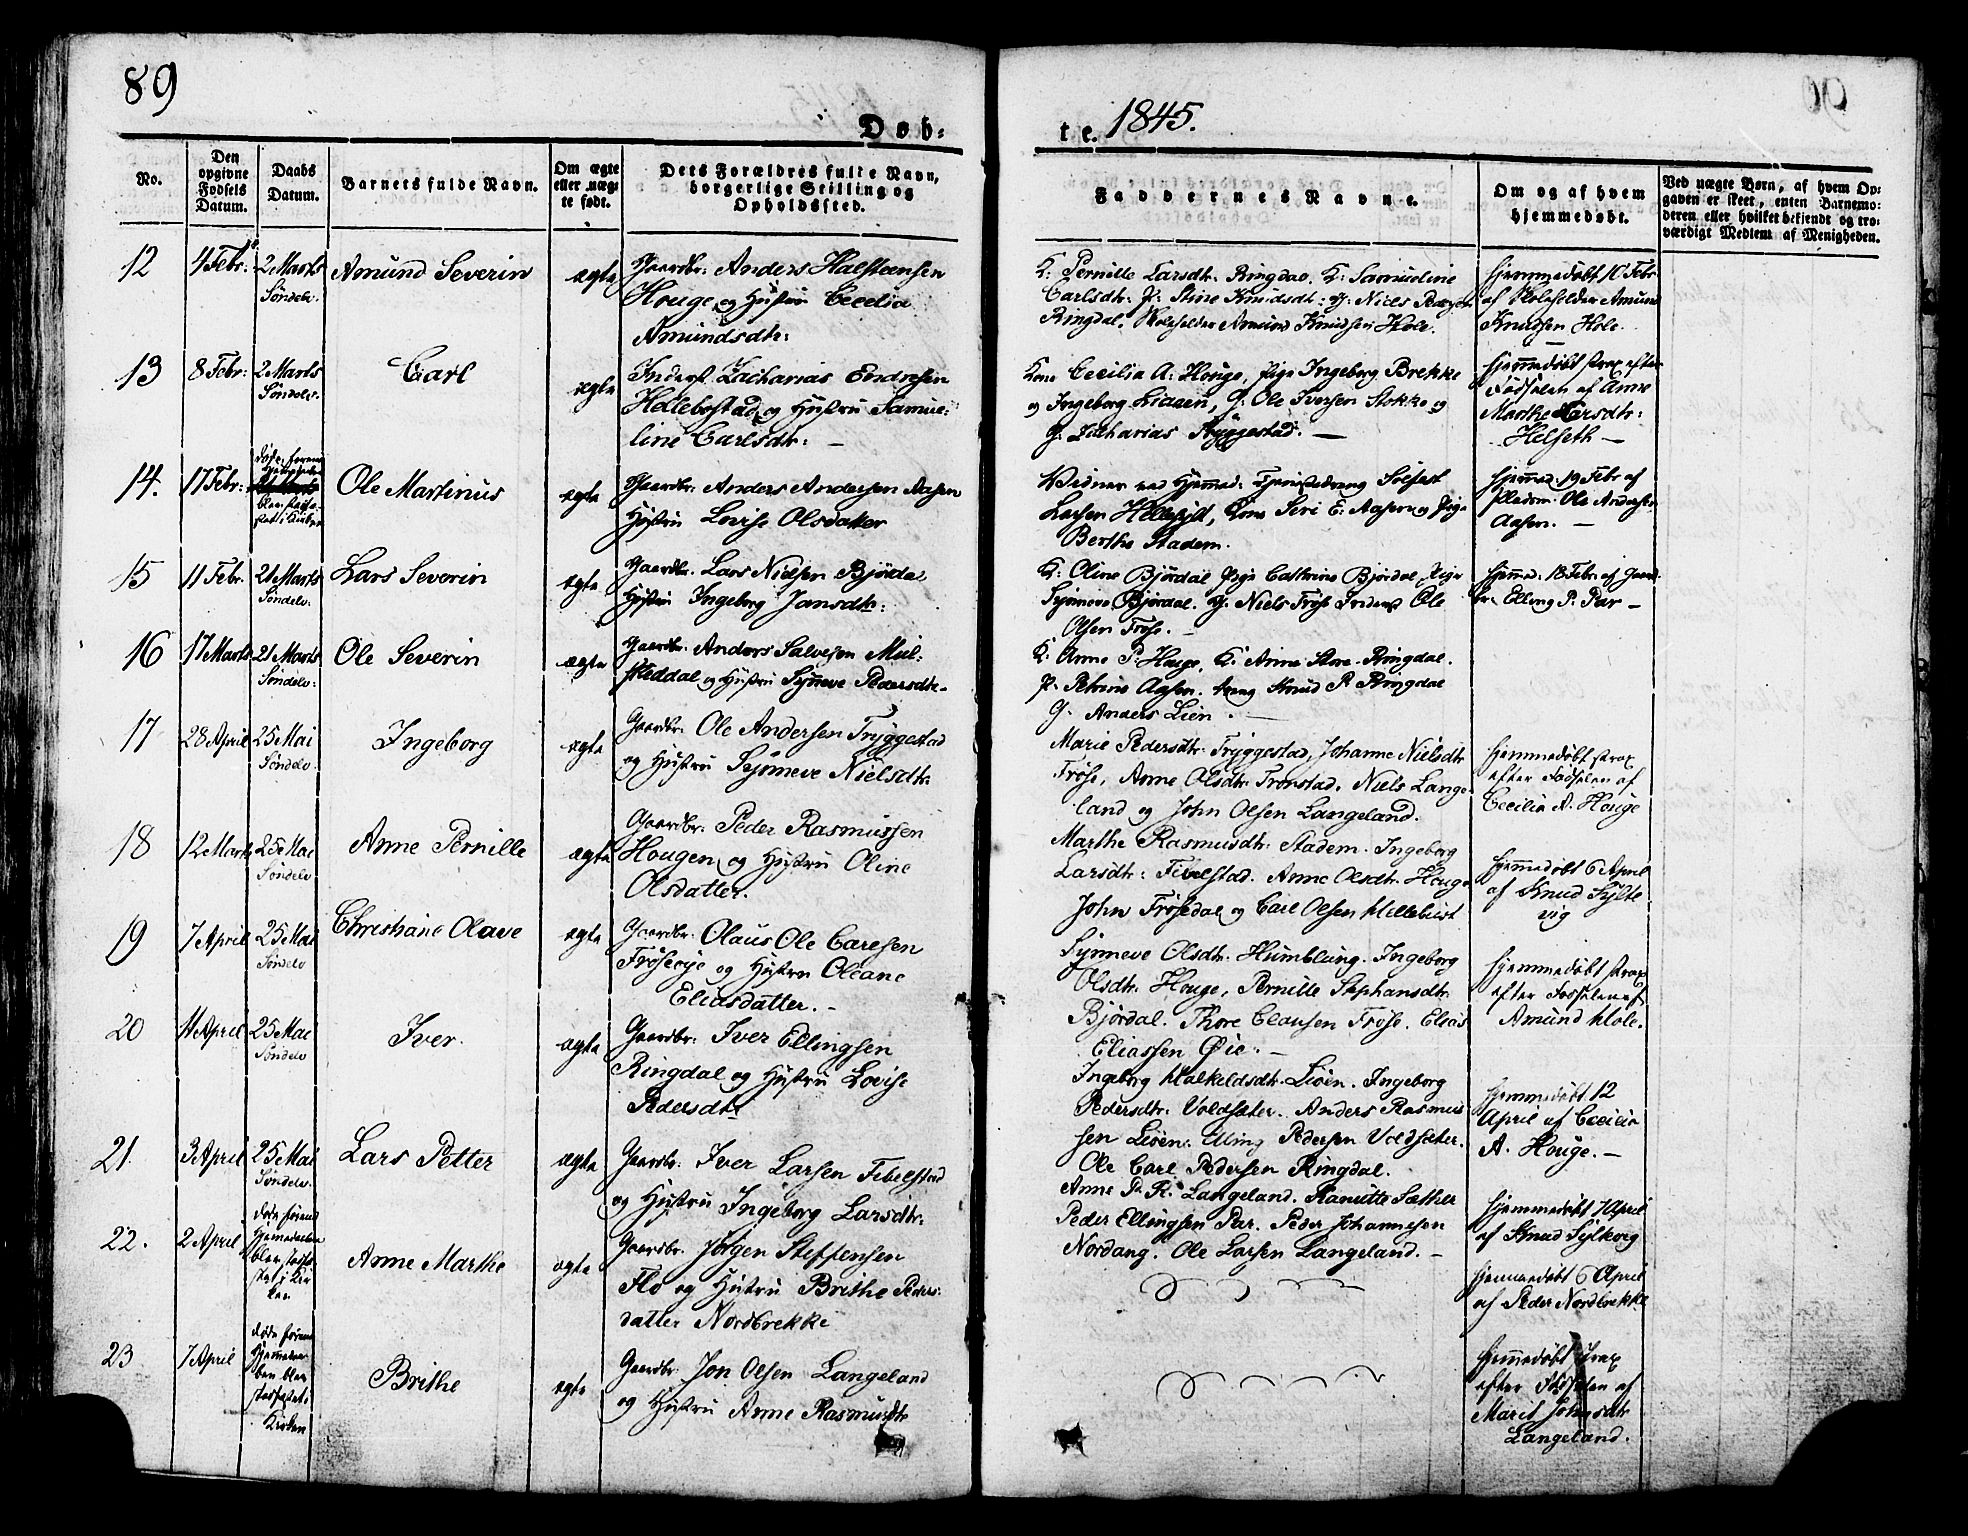 89
90
Døb-
te. 1845.
No.
Den opgivne Fødsels Datum.
Daabs Datum.
Barnets fulde Navn.
Om ægte eller uægte født.
Dets Forældres fulde Navn, borgerlige Stilling og Opholdssted.
Faddernes Navne.
Om og af hvem hjemmedøbt.
Ved uægte Børn, af hvem Opgaven er skeet, enten Barnemoderen eller hvilket bekjendt og troværdigt Medlem af Menigheden.
12
4 Febr:
2 Marts
Søndelv.
Amund Severin
ægte
Gaardbr: Anders Halsteensen
Houge og Hustru Cecelia
Amundsdtr:
K: Pernille Larsdtr. Ringdal. K: Samueline
Carlsdtr: P: Stine Knudsdtr:
Ringdal. Skoleholder Amund Knudsen Hole.
Hjemmedøbt 10 Febr
af Skoleholder Amund
Knudsen Hole.
13
8 Febr:
2 Marts
Søndelv.
Carl
ægte
Inderst Zacharias Endresen
Hellebostad og Hustru Samue-
line Carlsdtr: —
Kone Cecilia A: Houge, Pige Ingeborg Brekke
og Ingeborg Liaaen, G: Ole Iversen Stokke og
G: Zacharias Tryggestad. —
Hjemmedøbt strax efter
Fødselen af Anne
Marthe Larsdtr:
Helseth —
14.
17 Febr:
Døde forend
blev stadfæ-
stet i Kirken
Ole Martinus
ægte
Gaardbr: Anders Andersen Aasen
Hustru Lovise Olsdatter
Vidner ved Hjemmed: Tjenestedreng Solfest
Larsen Hellesylt, Kone Seri E. Aasen og Pige
Berthe Stadem.
Hjemmed: 19 Febr af
Ole Andersen
Aasen. —
15
11 Febr.
21 Marts
Søndelv:
Lars Severin
ægte
Gaardbr. Lars Nielsen Bjørdal
Hustru Ingeborg Jansdtr:
K: Oline Bjørdal Pige Cathrine Bjørdal Pige
Synneve Bjørdal. G: Niels Frøse Ole
Olsen Frøse. —
Hjemmed: 18 Febr. af Gaard-
br. Elling P. Par —
16
17 Marts
21 Marts
Søndelv:
Ole Severin
ægte
Gaardbr: Anders Salvesen Mul-
skeddal og Hustru Synneve Pedersdtr.
K: Anne P: Houge, K: Anne Store-Ringdal.
P: Petrine Aasen. Dreng Knud P. Ringdal
G: Anders Lien. —
17
28 April
25 Mai
Søndelv.
Ingeborg
ægte
Gaardbr: Ole Andersen Tryggestad
og Hustru Synneve Nielsdtr.
Marie Pedersdtr: Tryggestad, Johanne Nielsdtr
Frøse, Anne Olsdtr. Tronstad, Niels Lange-
land og John Olsen Langeland.
Hjemmedøbt strax
efter Fødselen af
Cecilia A. Houge
18
12 Marts
25 Mai
Søndelv
Anne Pernille
ægte
Gaardbr: Peder Rasmussen
Hougen og Hustru Oline
Olsdatter.
Marthe Rasmusdtr: Stadem. Ingeborg
Larsdtr: Fivelstad. Anne Olsdtr. Houge
John Frøsedal og Carl Olsen Hillebust
Hjemmedøbt 6 April
af Knud Sylte
vig
19
7 April
25 Mai
Søndelv
Christiane Olave
ægte
Gaardbr: Olaus Ole Carlsen
Frøseøje og Hustru Oleane
Eliasdatter. —
Synneve Olsdtr: Humblung. Ingeborg
Olsdtr. Houge, Pernille Stephansdtr.
Bjørdal. Thore Clausen Frøse. Elias
Eliassen Øie. —
Hjemmedøbt strax
efter Fødselen af
Amund Hole.
20
11 April
25 Mai
Søndelv
Iver.
ægte
Gaardbr: Iver Ellingsen
Ringdal og Hustru Lovise
Pedersdtr
Ingeborg Halkildsdtr. Liøen. Ingeborg
Pedersdtr: Voldsæter. Anders Rasmus
sen Liøen. Elling Pedersen Voldsæter.
Ole Carl Pedersen Ringdal.
Hjemmedøbt 12
April af Cecilia
A. Houge. —
21.
3 April
25 Mai
Søndelv.
Lars Petter
ægte
Gaardbr: Iver Larsen Fibelstad
og Hustru Ingeborg Larsdtr:
Anne P. R. Langeland. Ranutte Sæther
Peder Ellingsen Par. Peder Johannesen
Nordang. Ole Larsen Langeland. —
Hjemmedøbt 7 April
af Knud Syltevig
22.
2 April
Døde førend
Hjemmedaaben
blev stadfæ-
stet i Kir-
ken
Anne Marthe
ægte
Gaardbr. Jørgen Steffensen
Flo og Hustru Brithe Peders-
datter Nordbrekke
Hjemmedøbt 6 April
af Peder Nordbrekke
23
7 April
Døde førend
Hjemmedaa-
ben blev
stadfæstet i
Kirken
Brithe
ægte
Gaardbr: Jon Olsen Langeland
og Hustru Anne Rasmusdtr
Hjemmedøbt strax
efter Fødselen af
Marit Johnsdtr
Langeland.